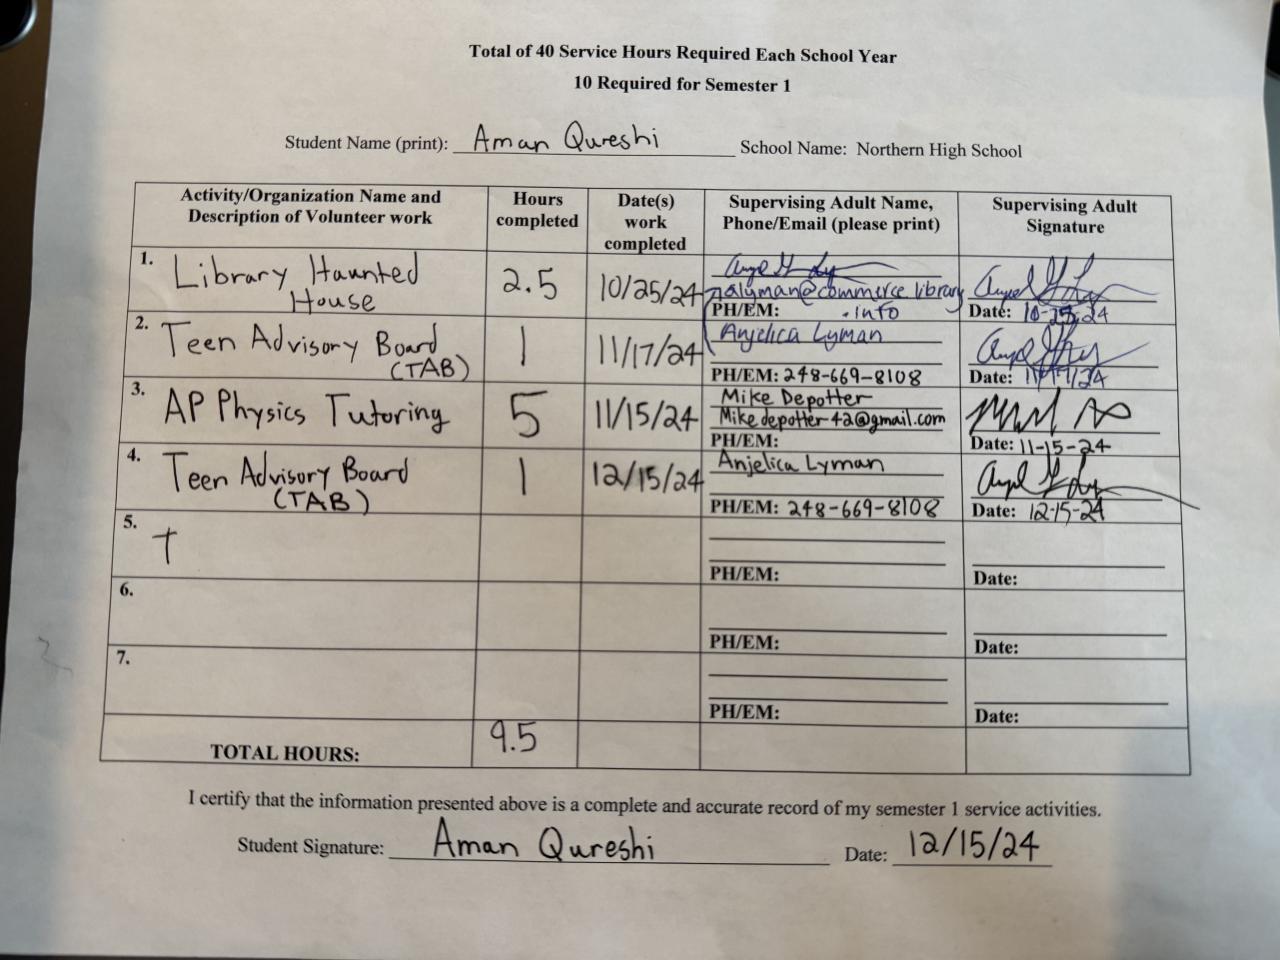 Total of 40 Service Hours Required Each School Year
10 Required for Semester 1
Student Name (print): Aman Qureshi School Name: Northern High School
Activity/Organization Name and Description of Volunteer work
Hours completed
Date(s) work completed
Supervising Adult Name, Phone/Email (please print)
Supervising Adult Signature
1. Library Haunted House
2.5
10/25/24
alyman@commerce library
PH/EM: .info
Date: 10-25-24
2. Teen Advisory Board (TAB)
1
11/17/24
Anjelica Lyman
PH/EM: 248-669-8108
Date: 11/17/24
3. AP Physics Tutoring
5
11/15/24
Mike Depotter
Mikedepotter42@gmail.com
PH/EM:
Date: 11-15-24
4. Teen Advisory Board (TAB)
1
12/15/24
Anjelica Lyman
PH/EM: 248-669-8108
Date: 12-15-24
5. t
PH/EM:
Date:
6.
PH/EM:
Date:
7.
PH/EM:
Date:
TOTAL HOURS: 9.5
I certify that the information presented above is a complete and accurate record of my semester 1 service activities.
Student Signature: Aman Qureshi Date: 12/15/24